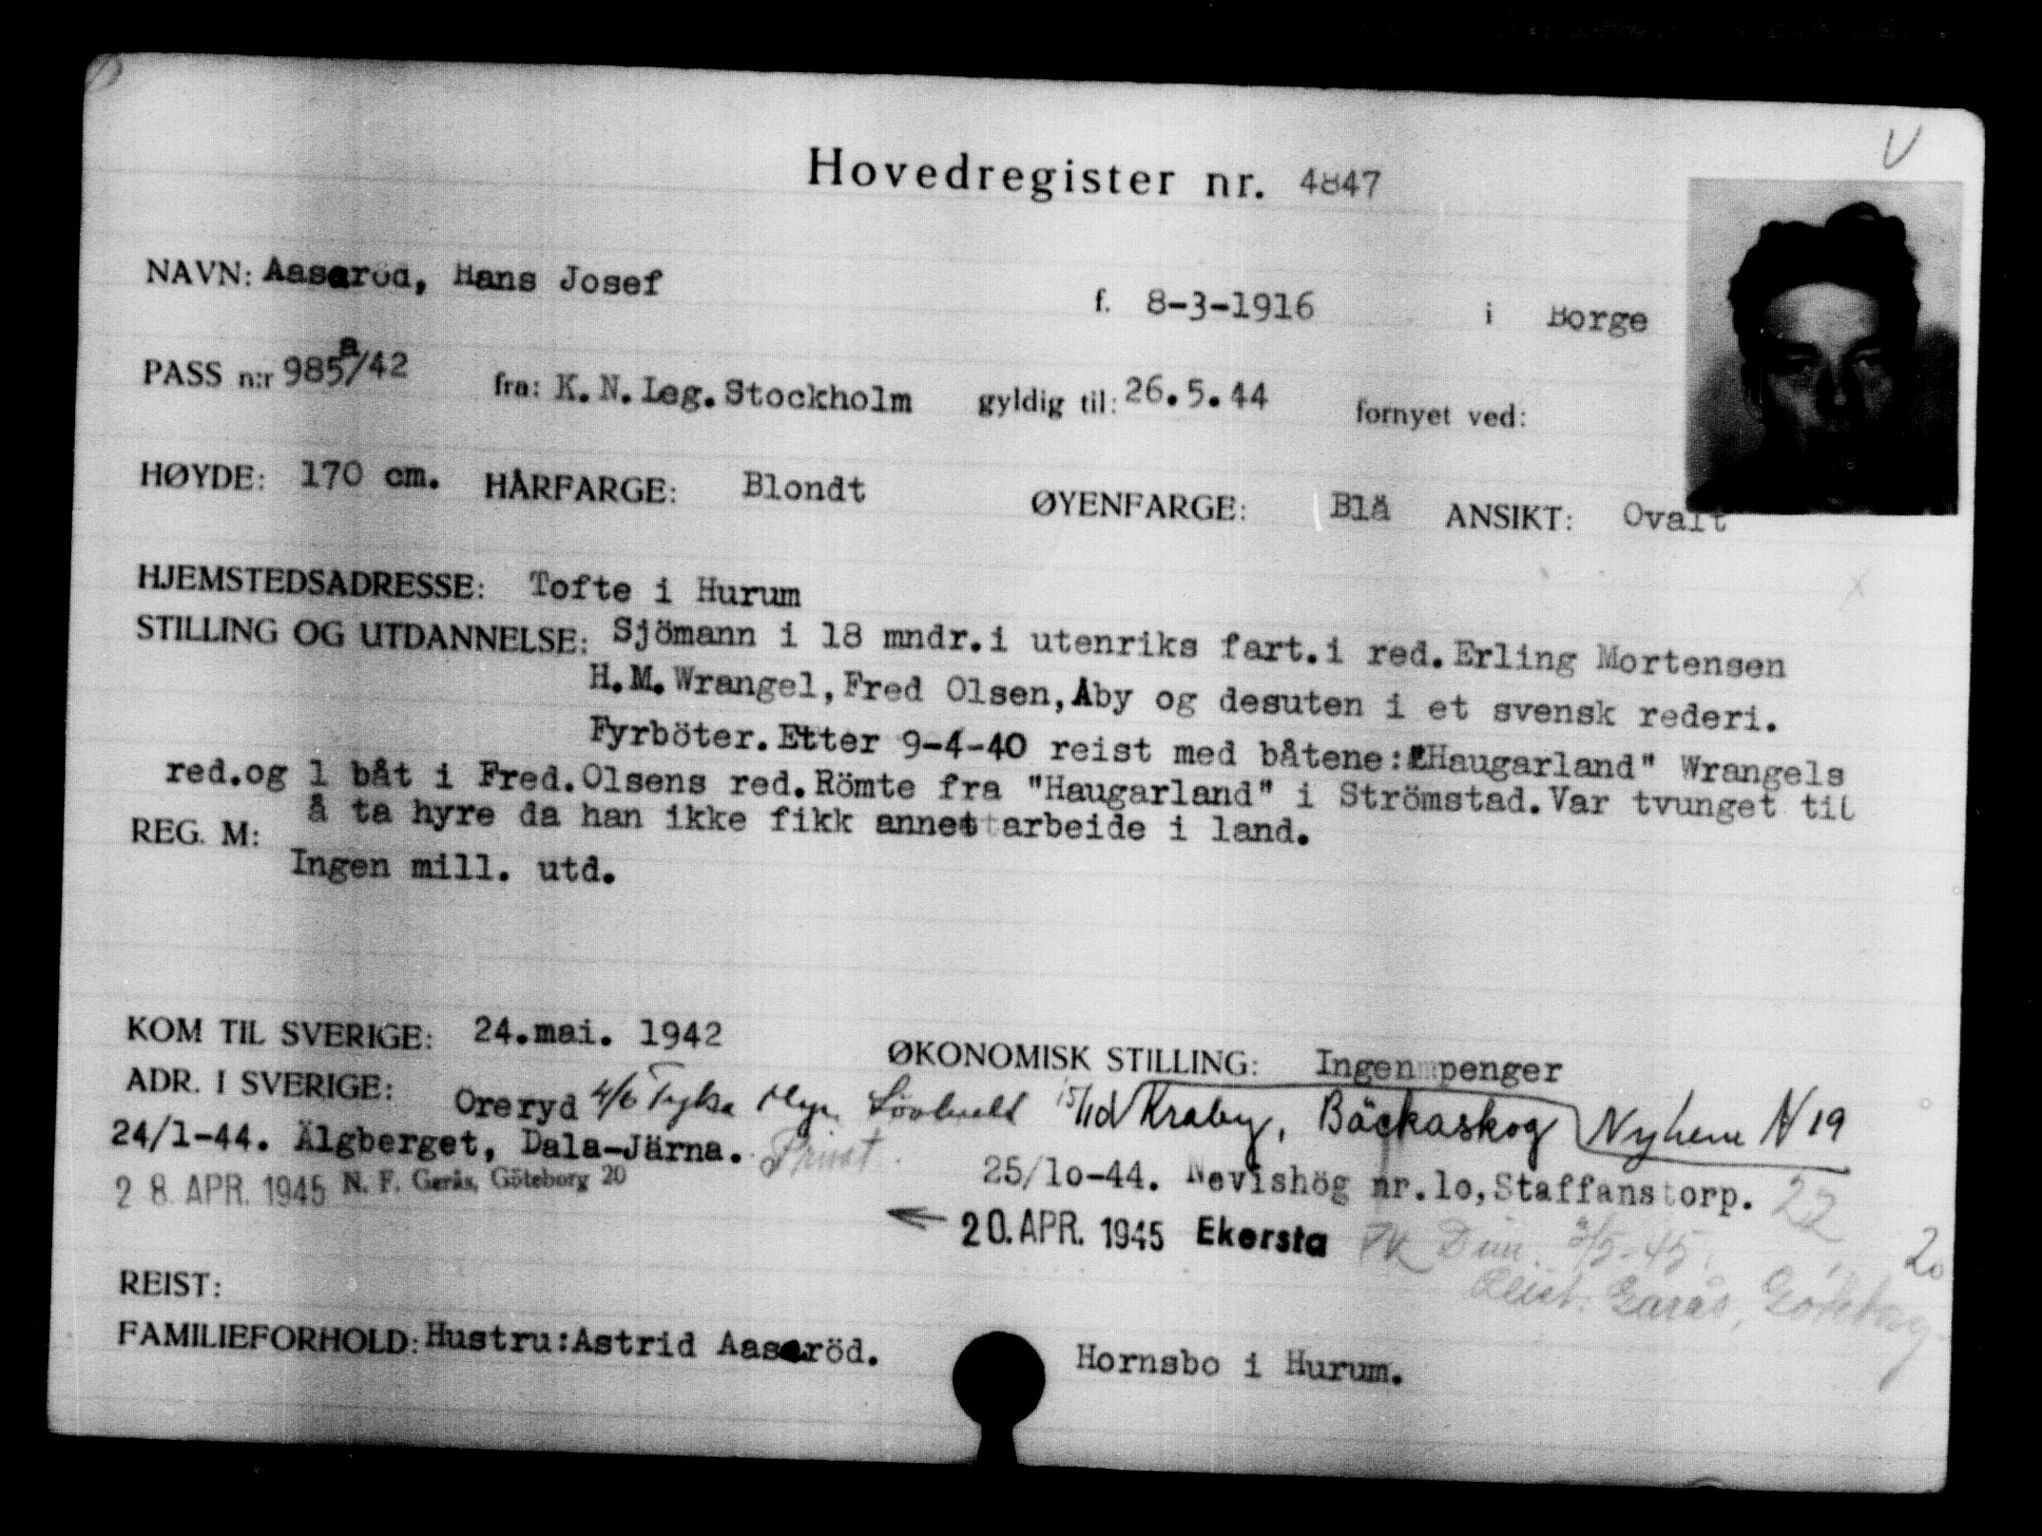 V
Hovedregister nr. 4847
NAVN: Aasaröd, Hans Josef f. 8-3-1916 i Borge
PASS n:r 985a/42 fra: K.N.Leg.Stockholm gyldig til: 26.5.44 fornyet ved:
HØYDE: 170 cm. HÅRFARGE: Blondt ØYENFARGE: Blå ANSIKT: Ovalt
HJEMSTEDSADRESSE: Tofte i Hurum
STILLING OG UTDANNELSE: Sjömann i 18 mndr.i utenriks fart.i red.Erling Mortensen
H.M.Wrangel,Fred Olsen,Åby og desuten i et svensk rederi.
Fyrböter.Etter 9-4-40 reist med båtene:"Haugarland" Wrangels
red.og 1 båt i Fred.Olsens red.Römte fra "Haugarland" i Strömstad.Var tvunget til
å ta hyre da han ikke fikk annet arbeide i land.
REG. M:
Ingen mill. utd.
KOM TIL SVERIGE: 24.mai. 1942
ØKONOMISK STILLING: Ingen penger
ADR. I SVERIGE: Oreryd 4/6 15/11 Kraby, Bäckaskog Nyhem N 19
24/1-44. Älgberget, Dala-Järna. Privat.
25/10-44. Nevishög nr.10,Staffanstorp. 22
28. APR. 1945 N. F. Gerås, Göteborg 20
20. APR. 1945 Ekersta PK Dim. 2/5-45. 20
Reist: Garås, Göteborg.
REIST:
FAMILIEFORHOLD: Hustru:Astrid Aasaröd. Hornsbo i Hurum.